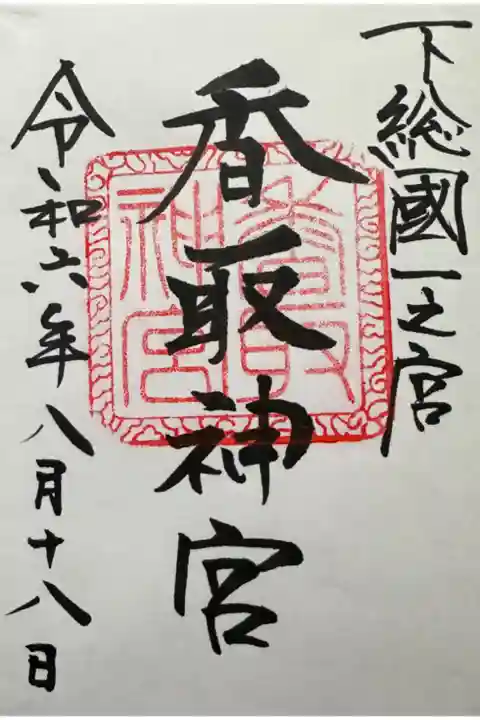 下総國一之宮
香取神宮
令和六年八月十八日
香取神宮